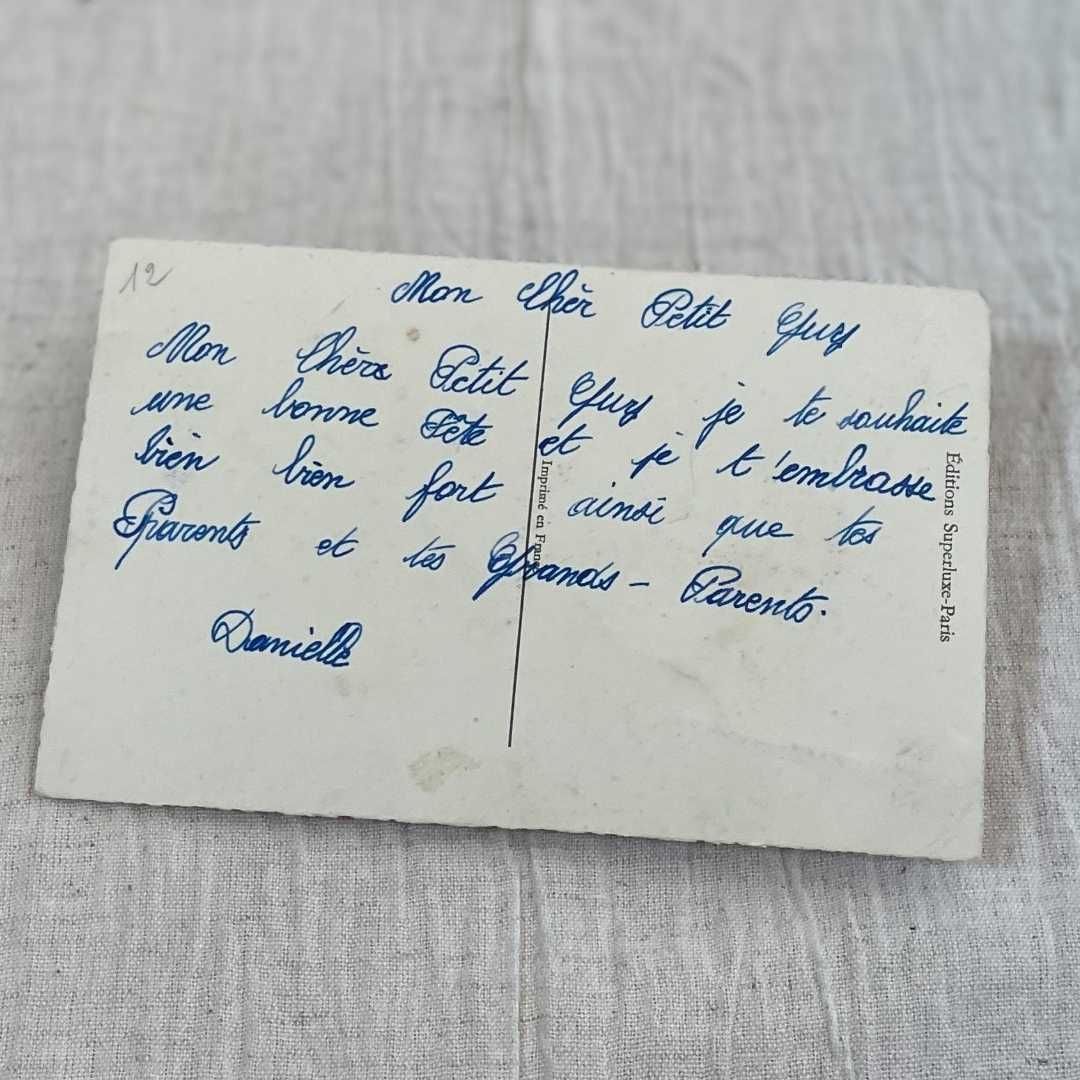 12
Mon Chèr Petit Guy
Mon Chère Petit Guy je te souhaite
une bonne Fête et je t'embrasse
bièn bièn fort ainsi que tes
Parents et tes Grands - Parents.
Danielle
Imprimé en France
Éditions Superluxe-Paris